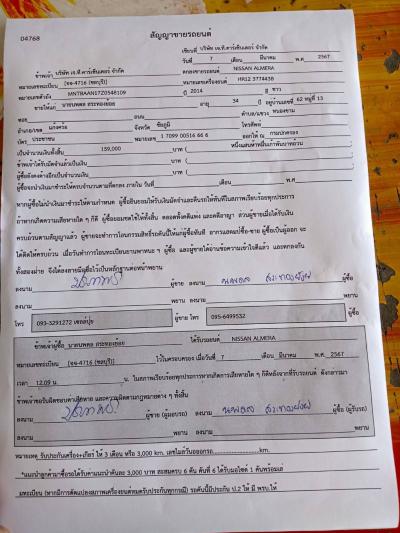 04768
สัญญาขายรถยนต์
เขียนที่ บริษัท เจ.ที.คาร์เซ็นเตอร์ จำกัด
วันที่ 7 เดือน มีนาคม พ.ศ. 2567
ข้าพเจ้า บริษัท เจ.ที.คาร์เซ็นเตอร์ จำกัด ตกลงขายรถยนต์ NISSAN ALMERA
หมายเลขทะเบียน (จง-4716 (ชลบุรี)) หมายเลขเครื่องยนต์ HR12 377443B
หมายเลขตัวถัง MNTBAAN17Z0548109 ปี 2014 สี ขาว
ขายให้แก่ นายนพดล สระทองย้อย อายุ 34 ปี อยู่บ้านเลขที่ 62 หมู่ที่ 13
ซอย ถนน ตำบล/แขวง หนองขาม
อำเภอ/เขต แก้งคร้อ จังหวัด ชัยภูมิ โทรศัพท์
บัตร ประชาชน หมายเลข 1 7099 00516 66 6 ออกให้ ณ กรมปกครอง
เป็นจำนวนเงินทั้งสิ้น 159,000 บาท ( หนึ่งแสนห้าหมื่นเก้าพันบาทถ้วน
ข้าพเจ้าได้รับมัดจำแล้วเป็นเงิน บาท ( )
ผู้ซื้อยังคงค้างอีกเป็นจำนวนเงิน บาท ( )
ผู้ซื้อจะนำเงินมาชำระให้ครบจำนวนตามที่ตกลง ภายใน วันที่ เดือน พ.ศ.
หากผู้ซื้อไม่นำเงินมาชำระให้ตามกำหนด ผู้ซื้อยินยอมให้ริบเงินมัดจำและคืนรถให้ทันทีในสภาพเรียบร้อยทุกประการ
ถ้าหากเกิดความเสียหายใด ๆ ก็ดี ผู้ซื้อยอมชดใช้ให้ทั้งสิ้น ตลอดทั้งคดีแพ่ง และคดีอาญา ส่วนผู้ขายเมื่อได้รับเงิน
ครบถ้วนตามสัญญาแล้ว ผู้ขายจะทำการโอนกรรมสิทธิ์รถคันนี้ให้แก่ผู้ซื้อทันที อากรแสตมป์ซื้อ-ขาย ผู้ซื้อเป็นผู้ออก จะ
ได้คิดให้ครบถ้วน เมื่อวันทำการโอนทะเบียนยานพาหนะ ฯ ผู้ซื้อ และผู้ขายได้อ่านข้อความเข้าใจดีแล้ว และตกลงกัน
ทั้งสองฝ่าย จึงได้ลงลายมือชื่อไว้เป็นหลักฐานต่อหน้าพยาน
ลงนาม ผู้ขาย ลงนาม นพดล สระทองย้อย ผู้ซื้อ
ลงนาม พยาน ลงนาม พยาน
โทร 093-3291272 ผู้ขาย โทร 095-6499532 ผู้ซื้อ
ข้าพเจ้าผู้ซื้อ นายนพดล สระทองย้อย ได้รับรถยนต์ NISSAN ALMERA
หมายเลขทะเบียน (จง-4716 (ชลบุรี)) ไว้ในครอบครอง เมื่อวันที่ 7 เดือน มีนาคม พ.ศ. 2567
เวลา 12.09 น. น. ในสภาพเรียบร้อยทุกประการหากเกิดการเสียหายใด ๆ ก็ดีหลังจากที่รับรถยนต์ ดังกล่าวมา
ข้าพเจ้าขอรับผิดชอบค่าเสียหาย และความผิดตามกฎหมายต่าง ๆ ทั้งสิ้น
ลงนาม ผู้ขาย (ผู้มอบรถ) ลงนาม นพดล สระทองย้อย ผู้ซื้อ (ผู้รับรถ)
ลงนาม พยาน ลงนาม พยาน
หมายเหตุ รับประกันเครื่อง+เกียร์ ให้ 3 เดือน หรือ 3,000 km. เลขไมล์วันออกรถ km.
*แนะนำลูกค้ามาซื้อรถได้รับค่าแนะนำคันละ 3,000 บาท สะสมครบ 6 คัน คันที่ 6 ได้รับมอไซค์ 1 คันพร้อมเล่
มทะเบียน (หากมีการดัดแปลงสภาพเครื่องยนต์หมดรับประกันทุกกรณี) รถคันนี้มีประกัน ป.2 ให้ มี พรบ.ให้